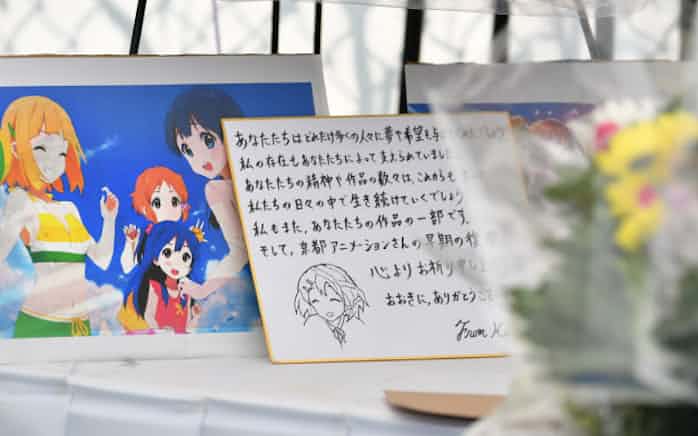 あなたたちはどれだけ多くの人々に夢や希望を与
私の存在もあなたたちによって支えられていました
あなたたちの精神や作品の数々は、これからも
私たちの日々の中で生き続けていくでしょう
私もまた、あなたたちの作品の一部です。
そして、京都アニメーションさんの早期の
心よりお祈り
おおきに、ありがとう
From